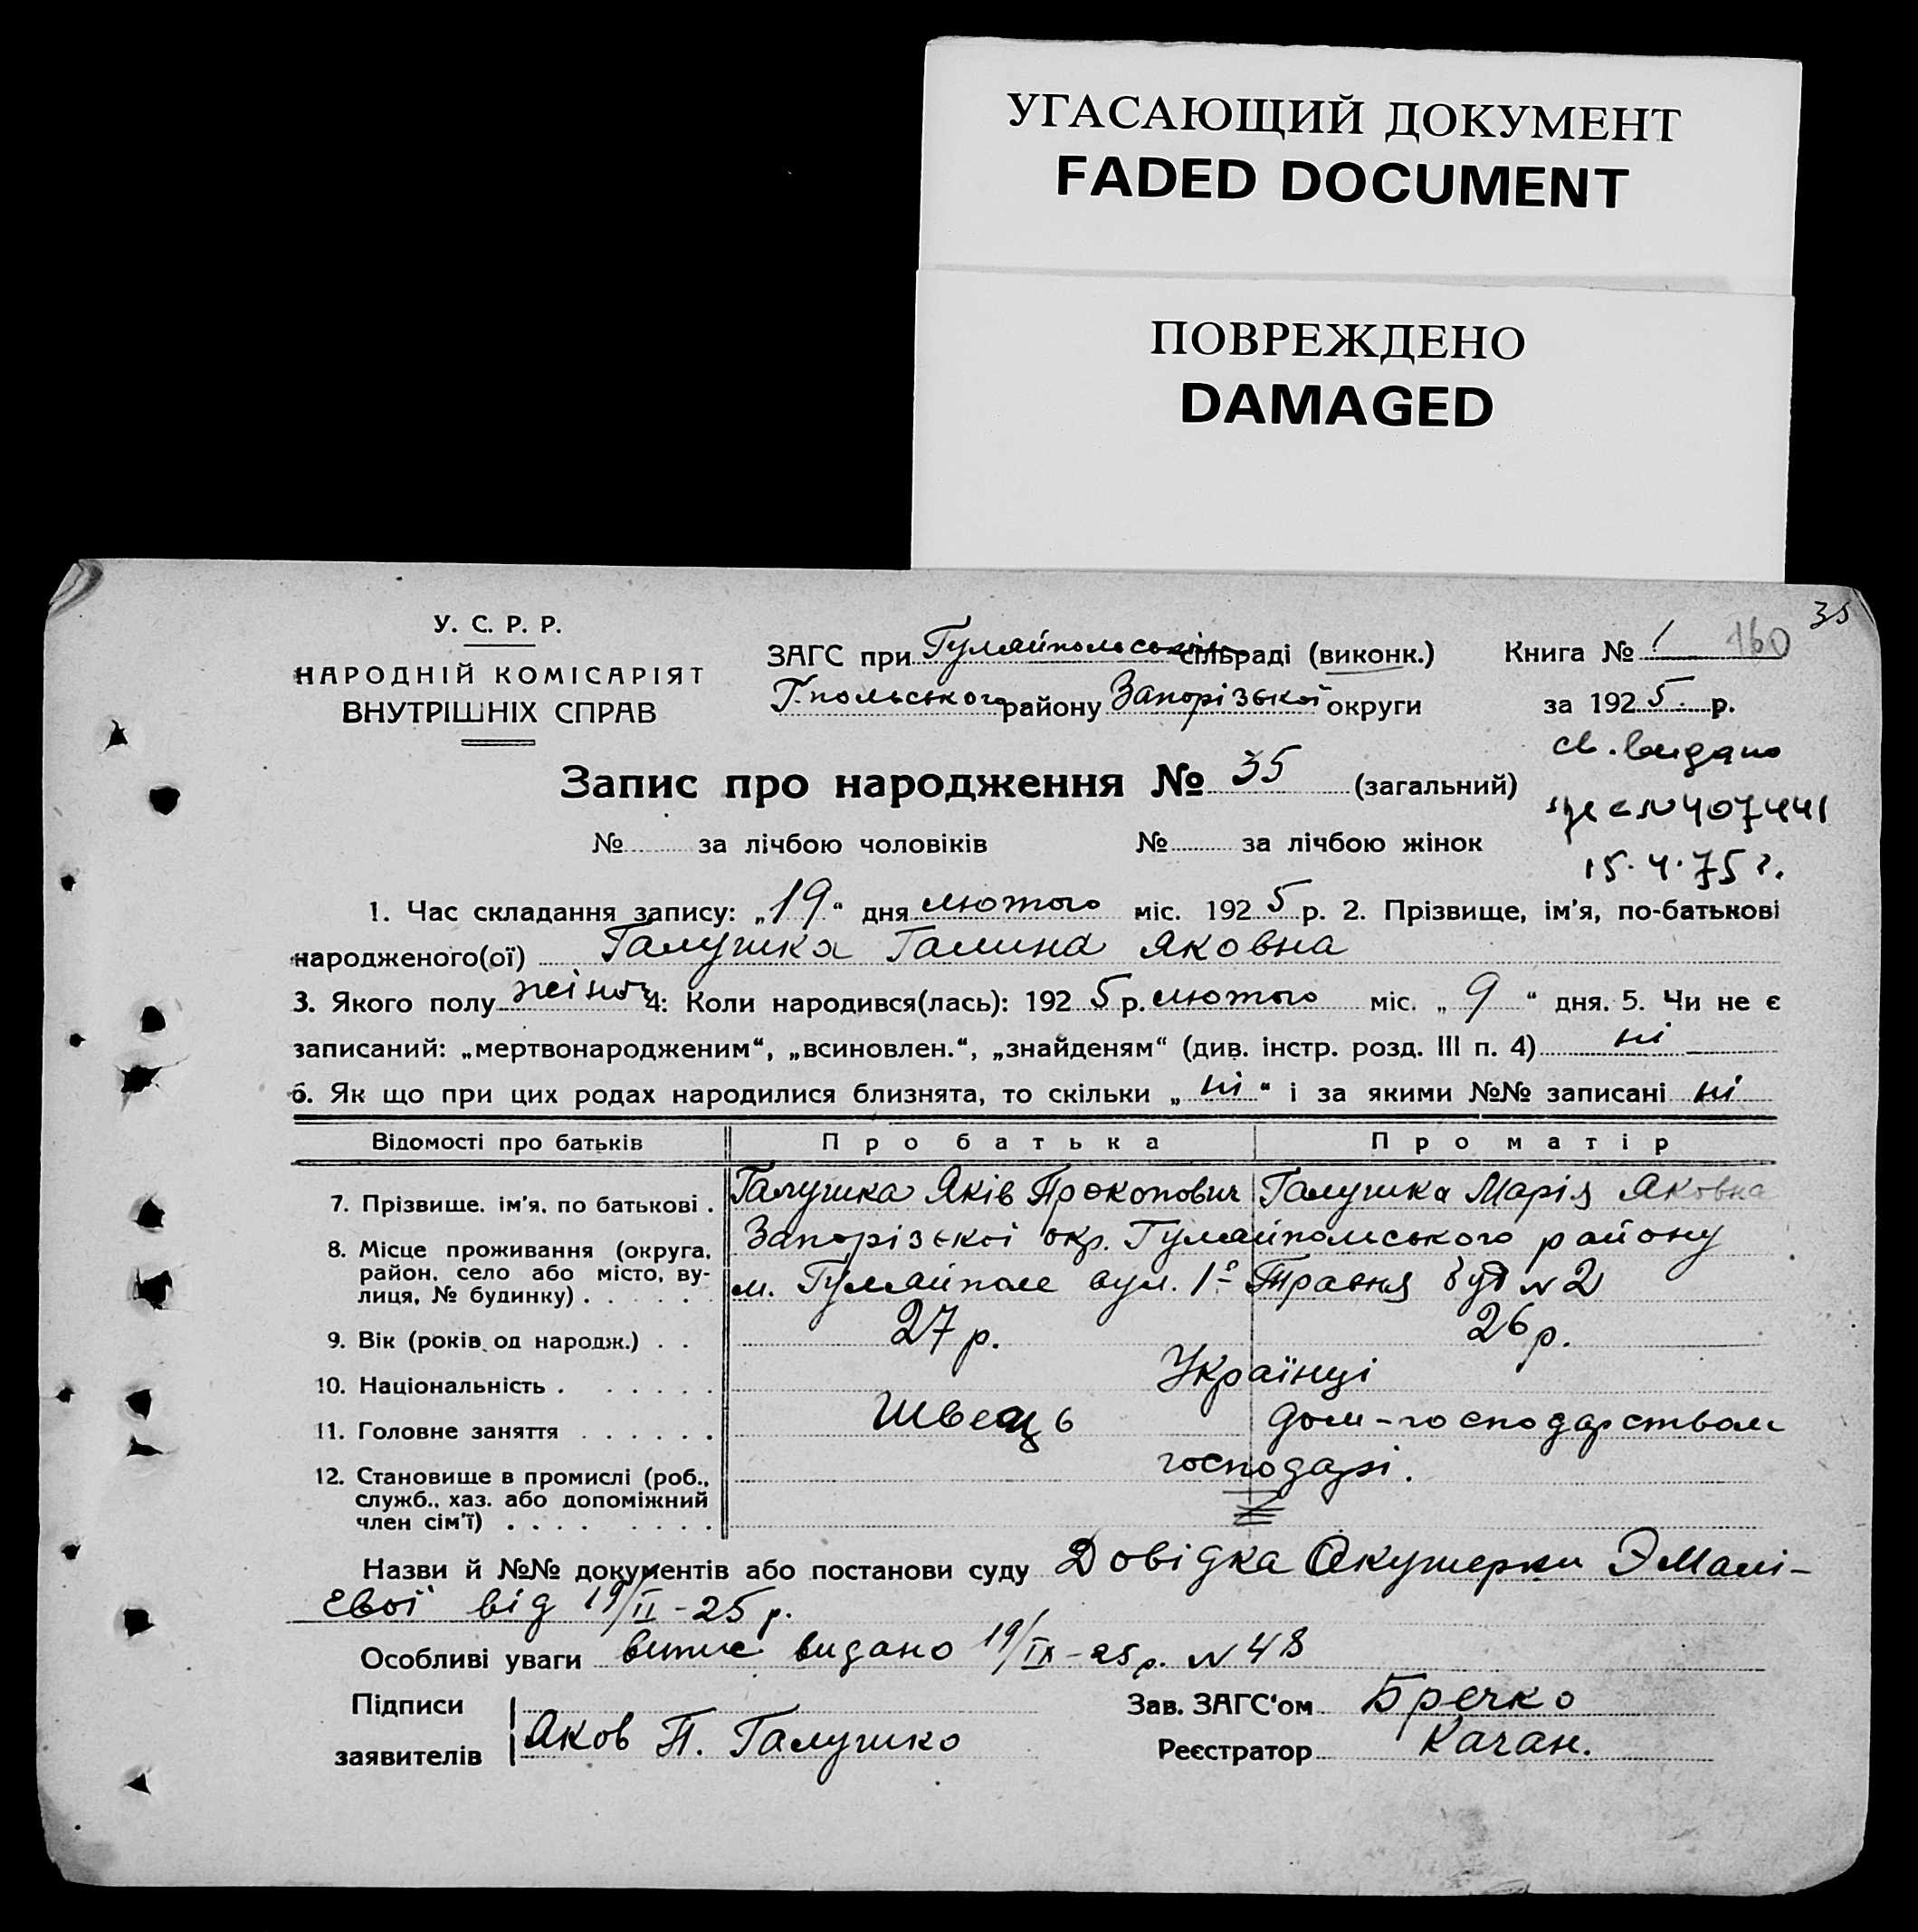 УГАСАЮЩИЙ ДОКУМЕНТ
FADED DOCUMENT
ПОВРЕЖДЕНО
DAMAGED
35
У. С. Р. Р.
НАРОДНІЙ КОМІСАРІЯТ
ВНУТРІШНІХ СПРАВ
ЗАГС при Гуляйпольськім сільраді (виконк.)
Г.польського району Запорізької округи
Книга № 1 160
за 1925 р.
св. видано
407441
15.4.75 г.
Запис про народження № 35 (загальний)
№ за лічбою чоловіків № за лічбою жінок
1. Час складання запису: „19“ дня лютого міс. 1925 р. 2. Прізвище, ім'я, по-батькові
народженого(ої) Галушка Галина Яковна
3. Якого полу жіноч 4: Коли народився(лась): 1925 р. лютого міс. „9“ дня. 5. Чи не є
записаний: „мертвонародженим“, „всиновлен.“, „знайденям“ (див. інстр. розд. III п. 4) ні
6. Як що при цих родах народилися близнята, то скільки „ні“ і за якими №№ записані ні
Відомості про батьків Про батька Про матір
7. Прізвище. ім'я. по батькові . Галушка Яків Прокопович Галушка Марія Яковна
8. Місце проживання (округа, район. село або місто, вулиця, № будинку) . . . . . Запорізької окр. Гуляйпольського району
м. Гуляйполе вул. 1го Травня буд N 2
9. Вік (років од народж.) . . 27 р. 26 р.
10. Національність . . . . . . Українці
11. Головне заняття . . . . . . Швець дом-господарством
12. Становище в промислі (роб., служб., хаз. або допоміжний член сім'ї) . . . . . . . . господарі.
Назви й №№ документів або постанови суду Довідка Акушерки Э Малі-
євої від 19/II-25 р.
Особливі уваги випис видано 19/IX-25 р. N 48
Підписи
заявителів Яков П. Галушко
Зав. ЗАГС'ом Бречко
Реєстратор Качан.